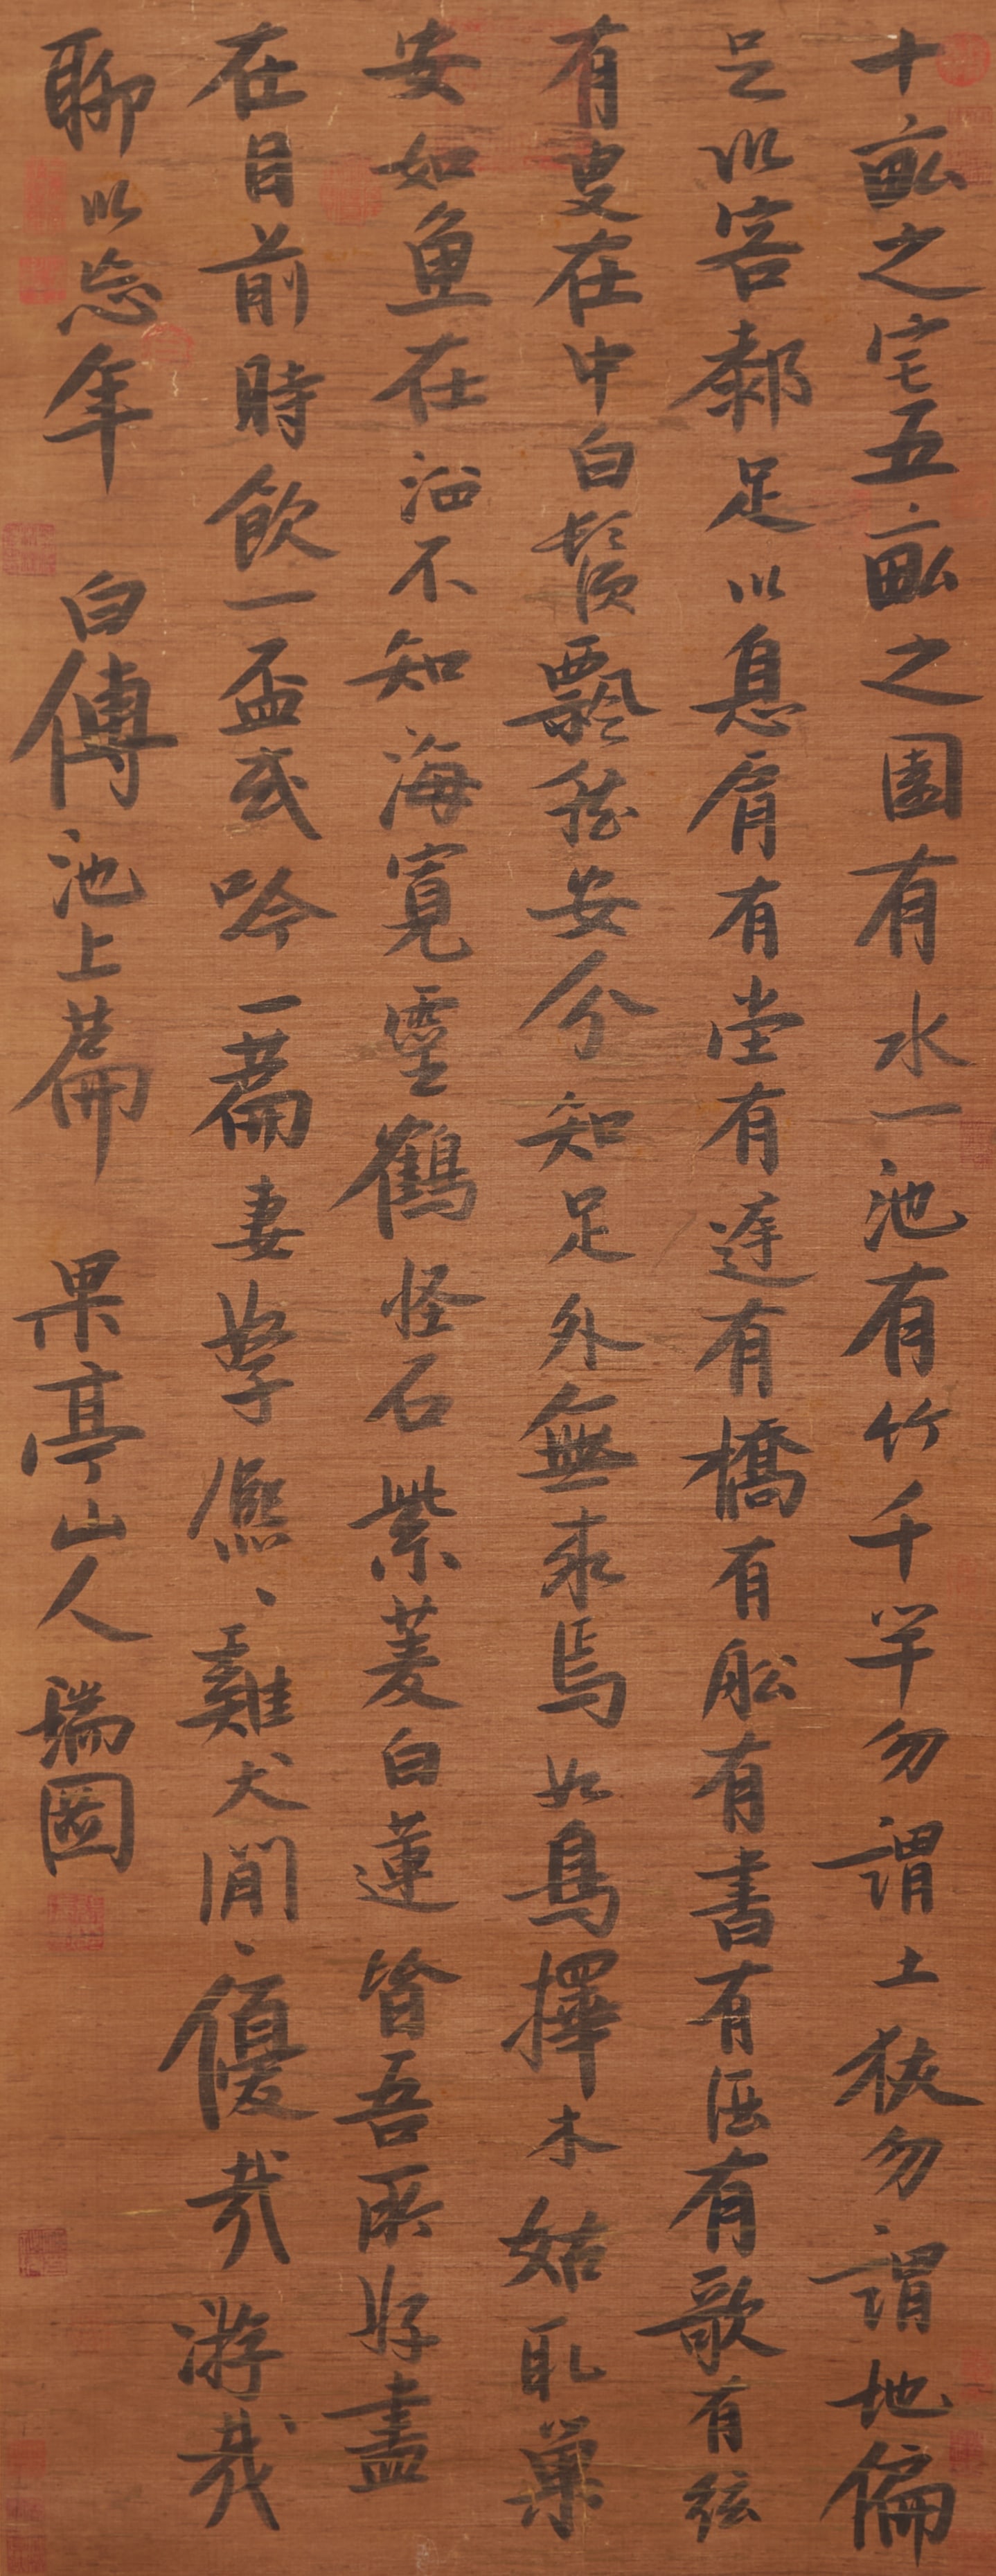 十畝之宅五畝之園有水一池有竹千竿勿謂土狹勿謂地偏
足以容膝足以息肩有堂有莛有橋有舩有書有酒有歌有弦
有叟在中白鬚飄然安分知足外無求焉如鳥擇木姑取巢
安如魚在沼不知海寬靈鶴怪石紫菱白蓮皆吾所好盡
在目前時飲一盃或吟一篇妻孥熙〻雞犬閒〻優哉游哉
聊以忘年 白傅池上篇 果亭山人瑞圖